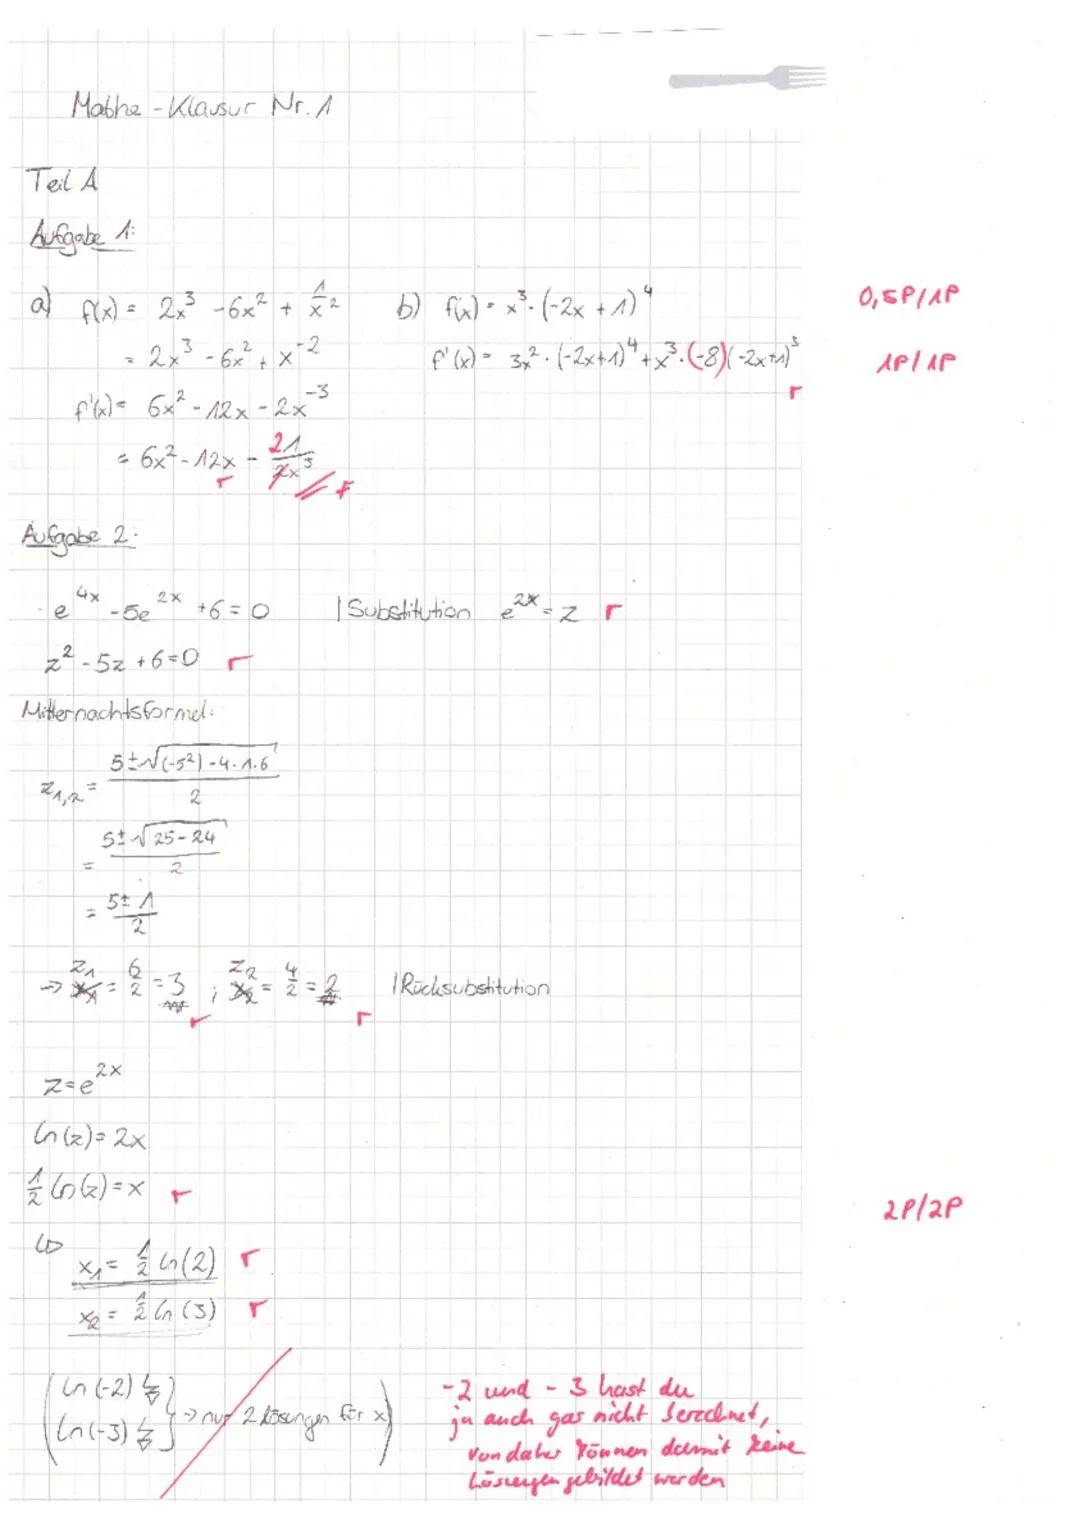 Mathe-Klausur Nr. 1
Teil A
Aufgabe 1:
a) f(x) = 2x³ - 6x² + 1/x²
= 2x³ - 6x² + x⁻²
f'(x) = 6x² - 12x - 2x⁻³
= 6x² - 12x - 1/2x³
2
r
f
b) f(x) = x³ · (-2x + 1)⁴
0,5P/1P
f'(x) = 3x² · (-2x+1)⁴ + x³ · (-8)(-2x+1)³
1P/1P
r
Aufgabe 2:
e⁴ˣ - 5e²ˣ + 6 = 0 | Substitution e²ˣ = z r
z² - 5z + 6 = 0 r
Mitternachtsformel:
z₁,₂ = 5±√((-5²) - 4·1·6) / 2
= 5±√(25-24) / 2
= 5±1 / 2
→ z₁ = 6/2 = 3 ; z₂ = 4/2 = 2 | Rücksubstitution
r
z = e²ˣ
ln(z) = 2x
1/2 ln(z) = x r
2P/2P
↳ x₁ = 1/2 ln(2) r
x₂ = 1/2 ln(3) r
(ln(-2) ↯
ln(-3) ↯ } → nur 2 Lösungen für x)
-2 und -3 hast du
ja auch gar nicht berechnet,
von daher können damit keine
Lösungen gebildet werden